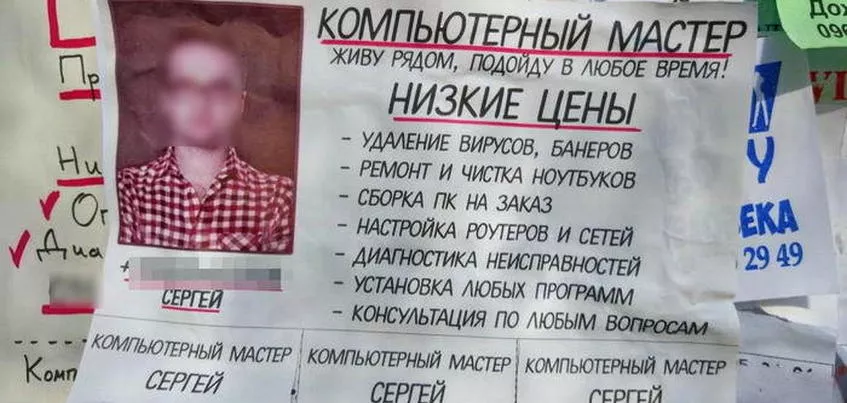 КОМПЬЮТЕРНЫЙ МАСТЕР
ЖИВУ РЯДОМ, ПОДОЙДУ В ЛЮБОЕ ВРЕМЯ!
НИЗКИЕ ЦЕНЫ
- УДАЛЕНИЕ ВИРУСОВ, БАНЕРОВ
- РЕМОНТ И ЧИСТКА НОУТБУКОВ
- СБОРКА ПК НА ЗАКАЗ
- НАСТРОЙКА РОУТЕРОВ И СЕТЕЙ
- ДИАГНОСТИКА НЕИСПРАВНОСТЕЙ
- УСТАНОВКА ЛЮБЫХ ПРОГРАММ
- КОНСУЛЬТАЦИЯ ПО ЛЮБЫМ ВОПРОСАМ
СЕРГЕЙ
КОМПЬЮТЕРНЫЙ МАСТЕР
СЕРГЕЙ
КОМПЬЮТЕРНЫЙ МАСТЕР
СЕРГЕЙ
КОМПЬЮТЕРНЫЙ МАСТЕР
СЕРГЕЙ
Пр
Ни
Диа
Комп
У
ЕКА
2 29 49